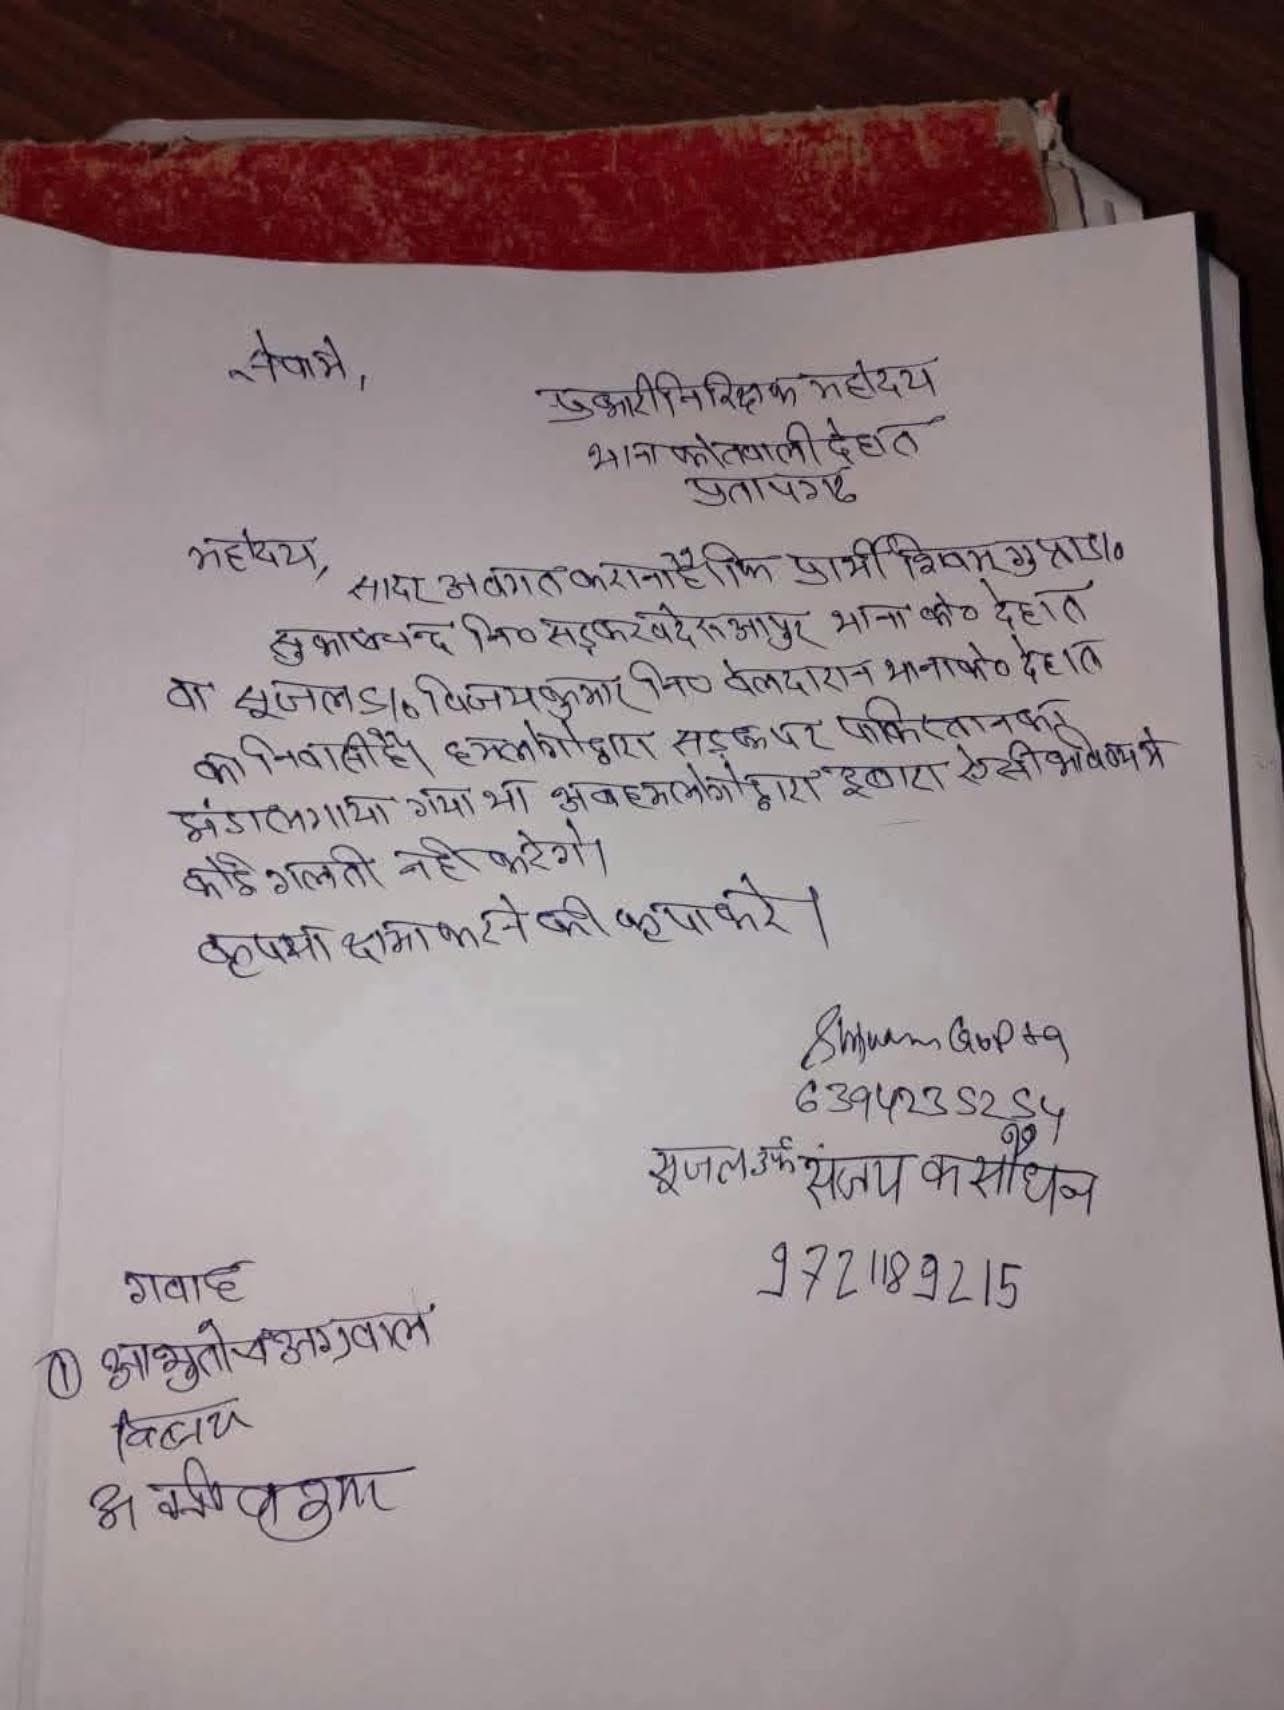 सेवामे,
प्रभारी निरिक्षक महोदय
थाना कोतवाली देहात
प्रतापगढ़
महोदय,
सादर अवगत कराना है कि प्रार्थी शिवम गुप्ता S/o
सुभाषचन्द नि० सड़वा थाना को० देहात
वा सूजल S/o विजय कुमार नि० बेलदारान थाना को० देहात
का निवासी है। हमलोगो द्वारा सड़क पर पाकिस्तान का
झंडा लगाया गया था अब हमलोगो द्वारा दुबारा ऐसी भविष्य मे
कोई गलती नही करेगे।
कृपया क्षमा करने की कृपा करे।
Shivam Gupta
6394235254
सूजल उर्फ संजय कसौधन
9721189215
गवाह
① आशुतोष अग्रवाल
विजय